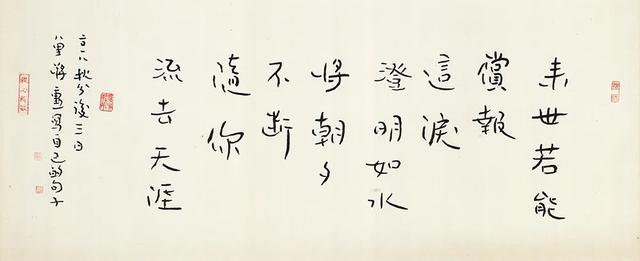 来世若能
償報
這淚
澄明如水
將朝夕
不斷
隨你
流去天涯
二〇一八秋分後三日
八里蔣勳寫自己的句子